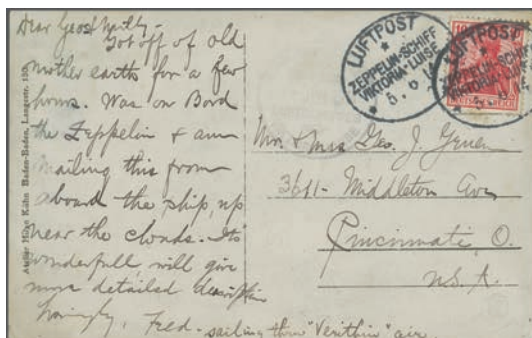 Dear Geo &
Got off of old
mother earth for a few
hours. Was on Bord
the Zeppelin & am
mailing this from
aboard the ship, up
near the clouds. Its
wonderfull, will give
more detailed
Lovingly, Fred - sailing thru " " air.
Atelier Kühn Baden-Baden, Langestr.
LUFTPOST
ZEPPELIN-SCHIFF
VIKTORIA-LUISE
5. 6. 1
LUFTPOST
ZEPPELIN-SCHIFF
VIKTORIA-LUISE
5. 6.
10
DEUTSCHES REICH
Mr. & Mrs Geo. J.
3611- Middleton Ave
Cincinnati, O.
U.S.A.